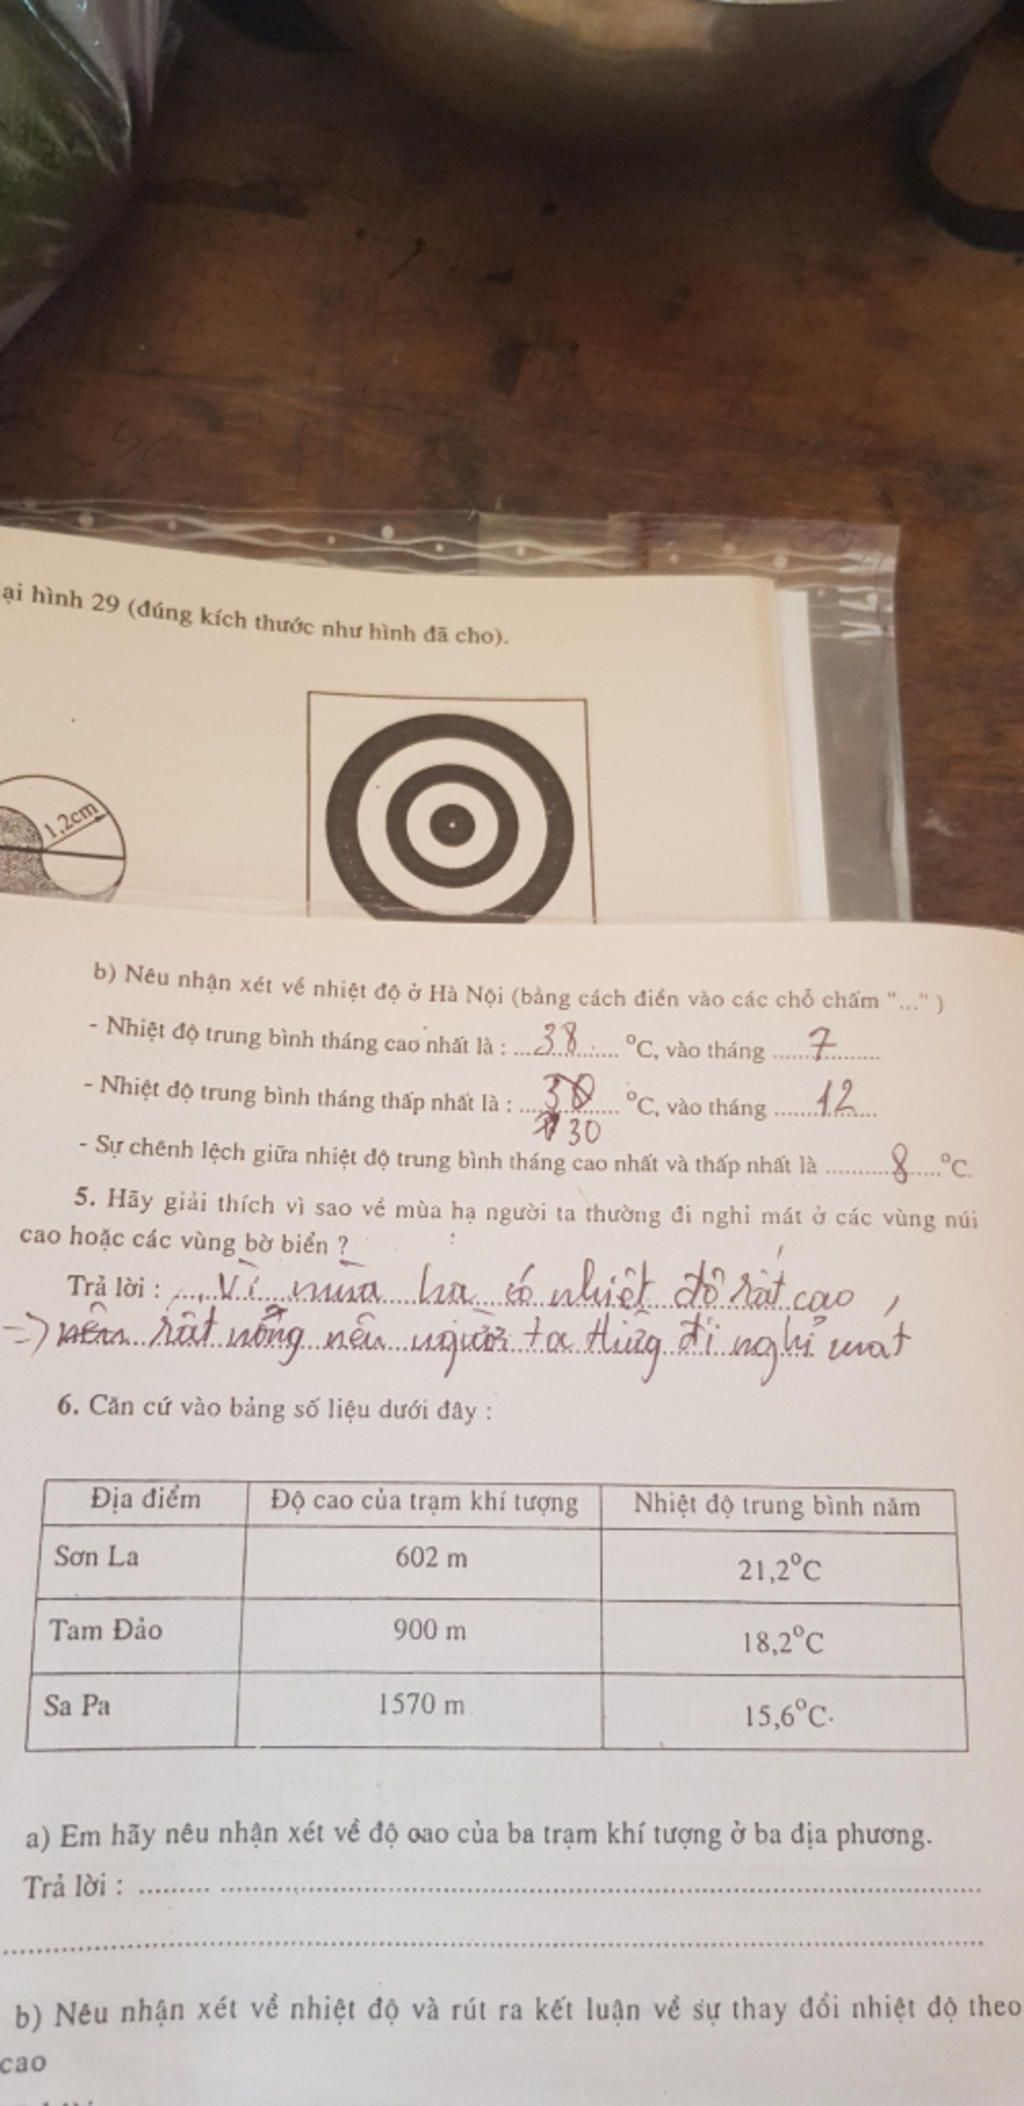 ại hình 29 (đúng kích thước như hình đã cho).
1,2cm
b) Nêu nhận xét về nhiệt độ ở Hà Nội (bằng cách điền vào các chỗ chấm "..." )
- Nhiệt độ trung bình tháng cao nhất là : ...38...... °C, vào tháng ......7.........
- Nhiệt độ trung bình tháng thấp nhất là : ............ °C, vào tháng ......12...
30
- Sự chênh lệch giữa nhiệt độ trung bình tháng cao nhất và thấp nhất là .........8....°C.
5. Hãy giải thích vì sao về mùa hạ người ta thường đi nghỉ mát ở các vùng núi
cao hoặc các vùng bờ biển ?
Trả lời : ..... Vì mùa hạ có nhiệt độ rất cao,
=> rất nóng nên người ta thường đi nghỉ mát
6. Căn cứ vào bảng số liệu dưới đây :
Địa điểm Độ cao của trạm khí tượng Nhiệt độ trung bình năm
Sơn La 602 m 21,2°C
Tam Đảo 900 m 18,2°C
Sa Pa 1570 m 15,6°C.
a) Em hãy nêu nhận xét về độ cao của ba trạm khí tượng ở ba địa phương.
Trả lời : ................................................
b) Nêu nhận xét về nhiệt độ và rút ra kết luận về sự thay đổi nhiệt độ theo
cao